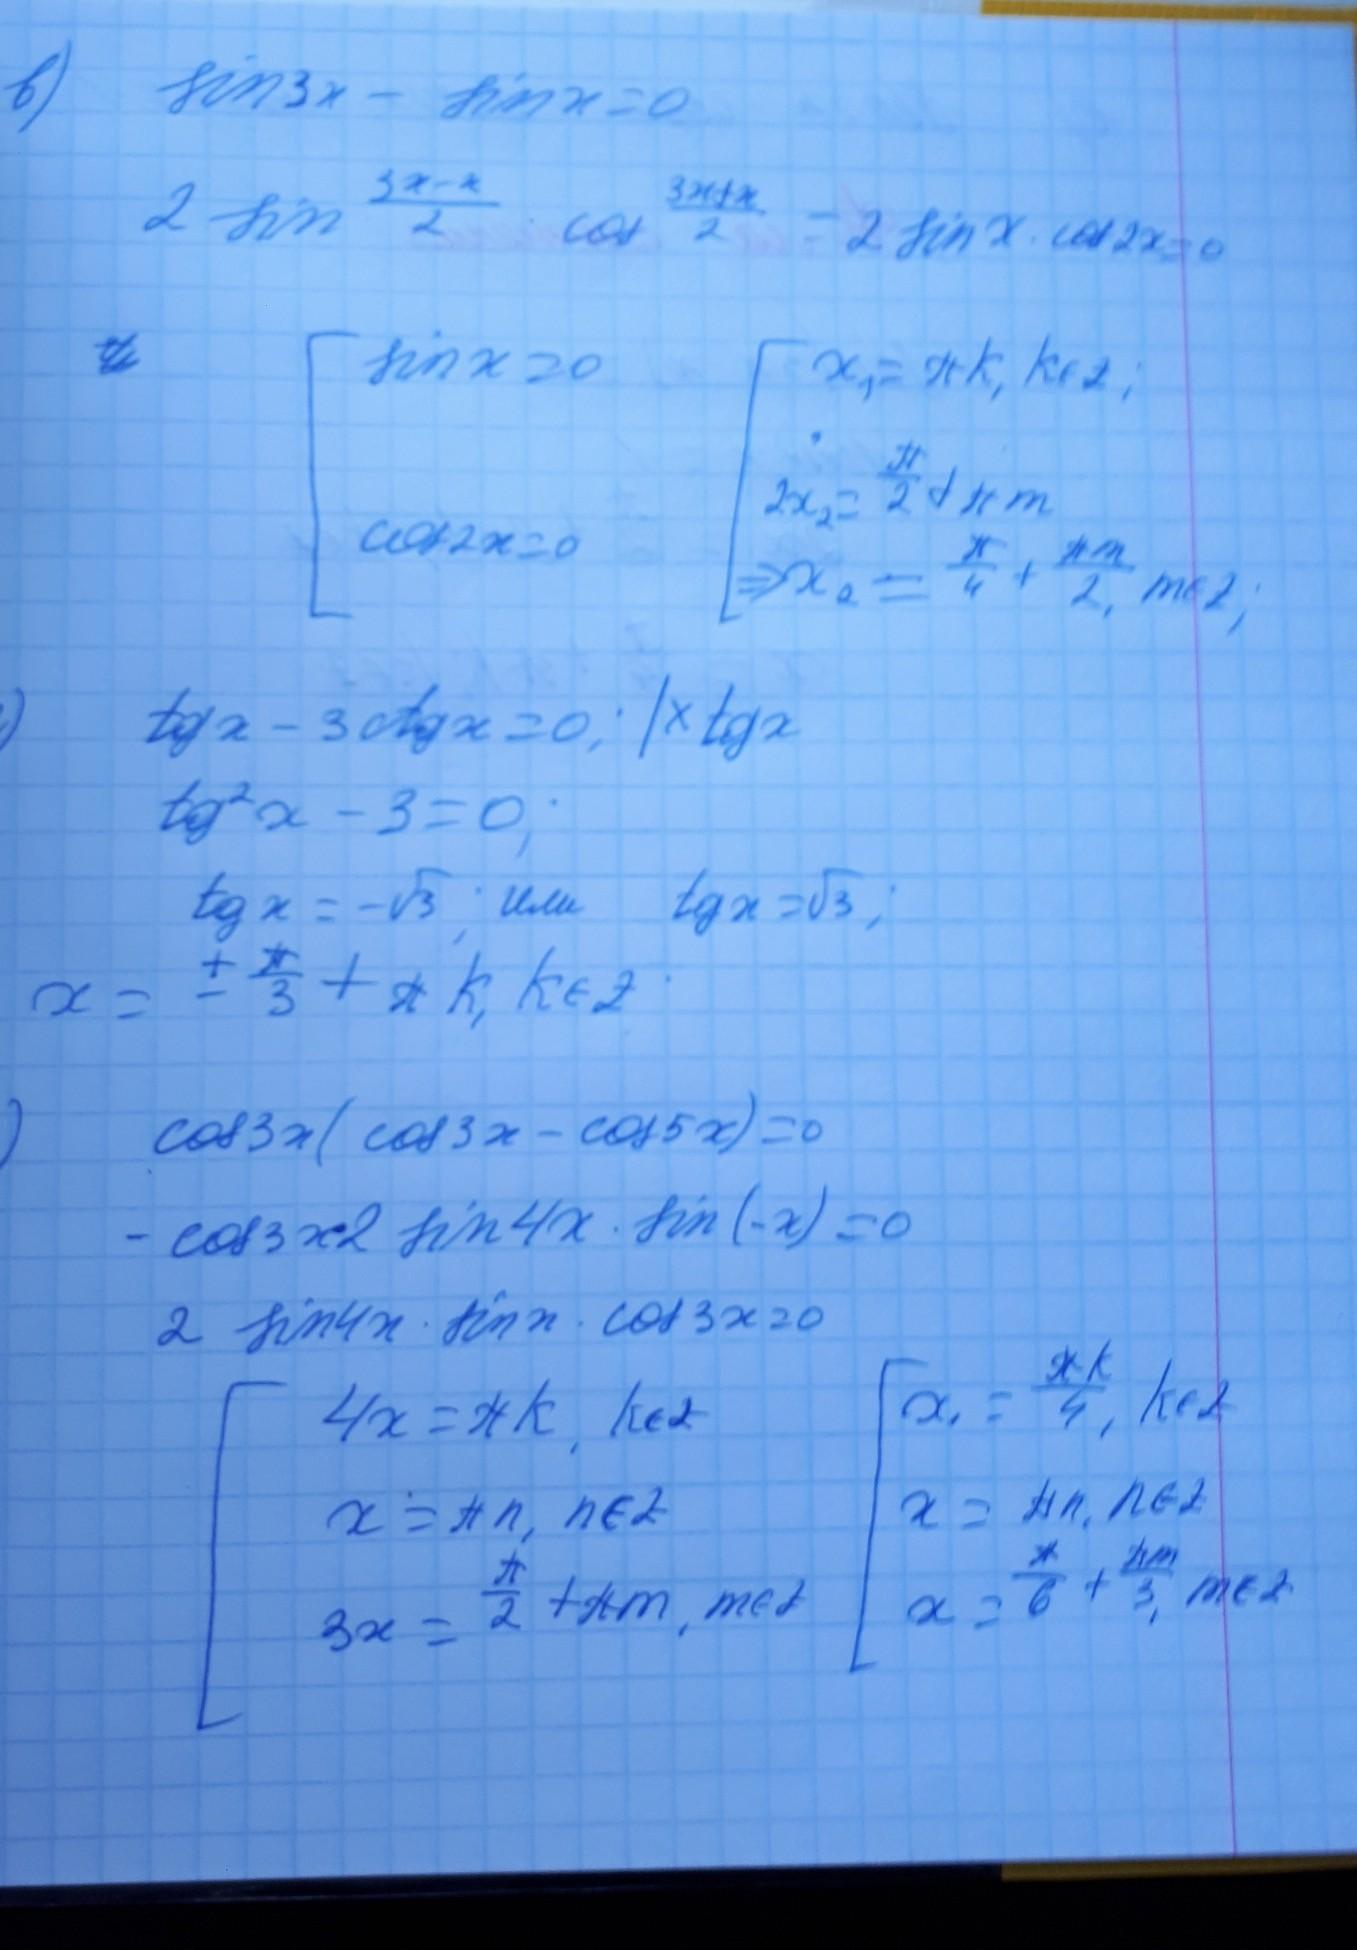 в) sin3x - sinx=0
2 sin (3x-x)/2 · cos (3x+x)/2 = 2 sinx · cos2x=0
[ sinx=0 [ x₁= πk, k∈z;
2x₂= π/2 + πm
cos2x=0 ⇒x₂ = π/4 + πm/2, m∈z;
) tgx - 3ctgx=0; |× tgx
tg²x - 3=0;
tgx = -√3; или tgx =√3;
x = ± π/3 + πk, k∈z
) cos3x(cos3x - cos5x)=0
- cos3x·2 sin4x · sin(-x) =0
2 sin4x · sinx · cos3x=0
[ 4x = πk, k∈z [ x₁ = πk/4, k∈z
x = πn, n∈z x = πn, n∈z
3x = π/2 + πm, m∈z x = π/6 + πm/3, m∈z